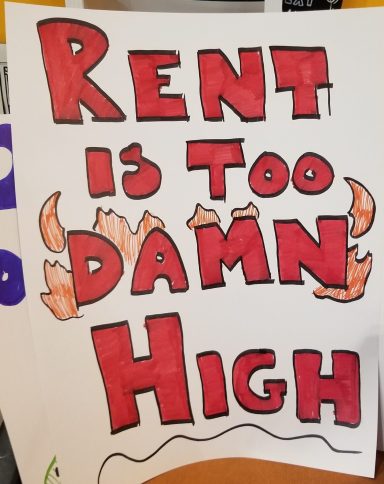 RENT
IS TOO
DAMN
HIGH